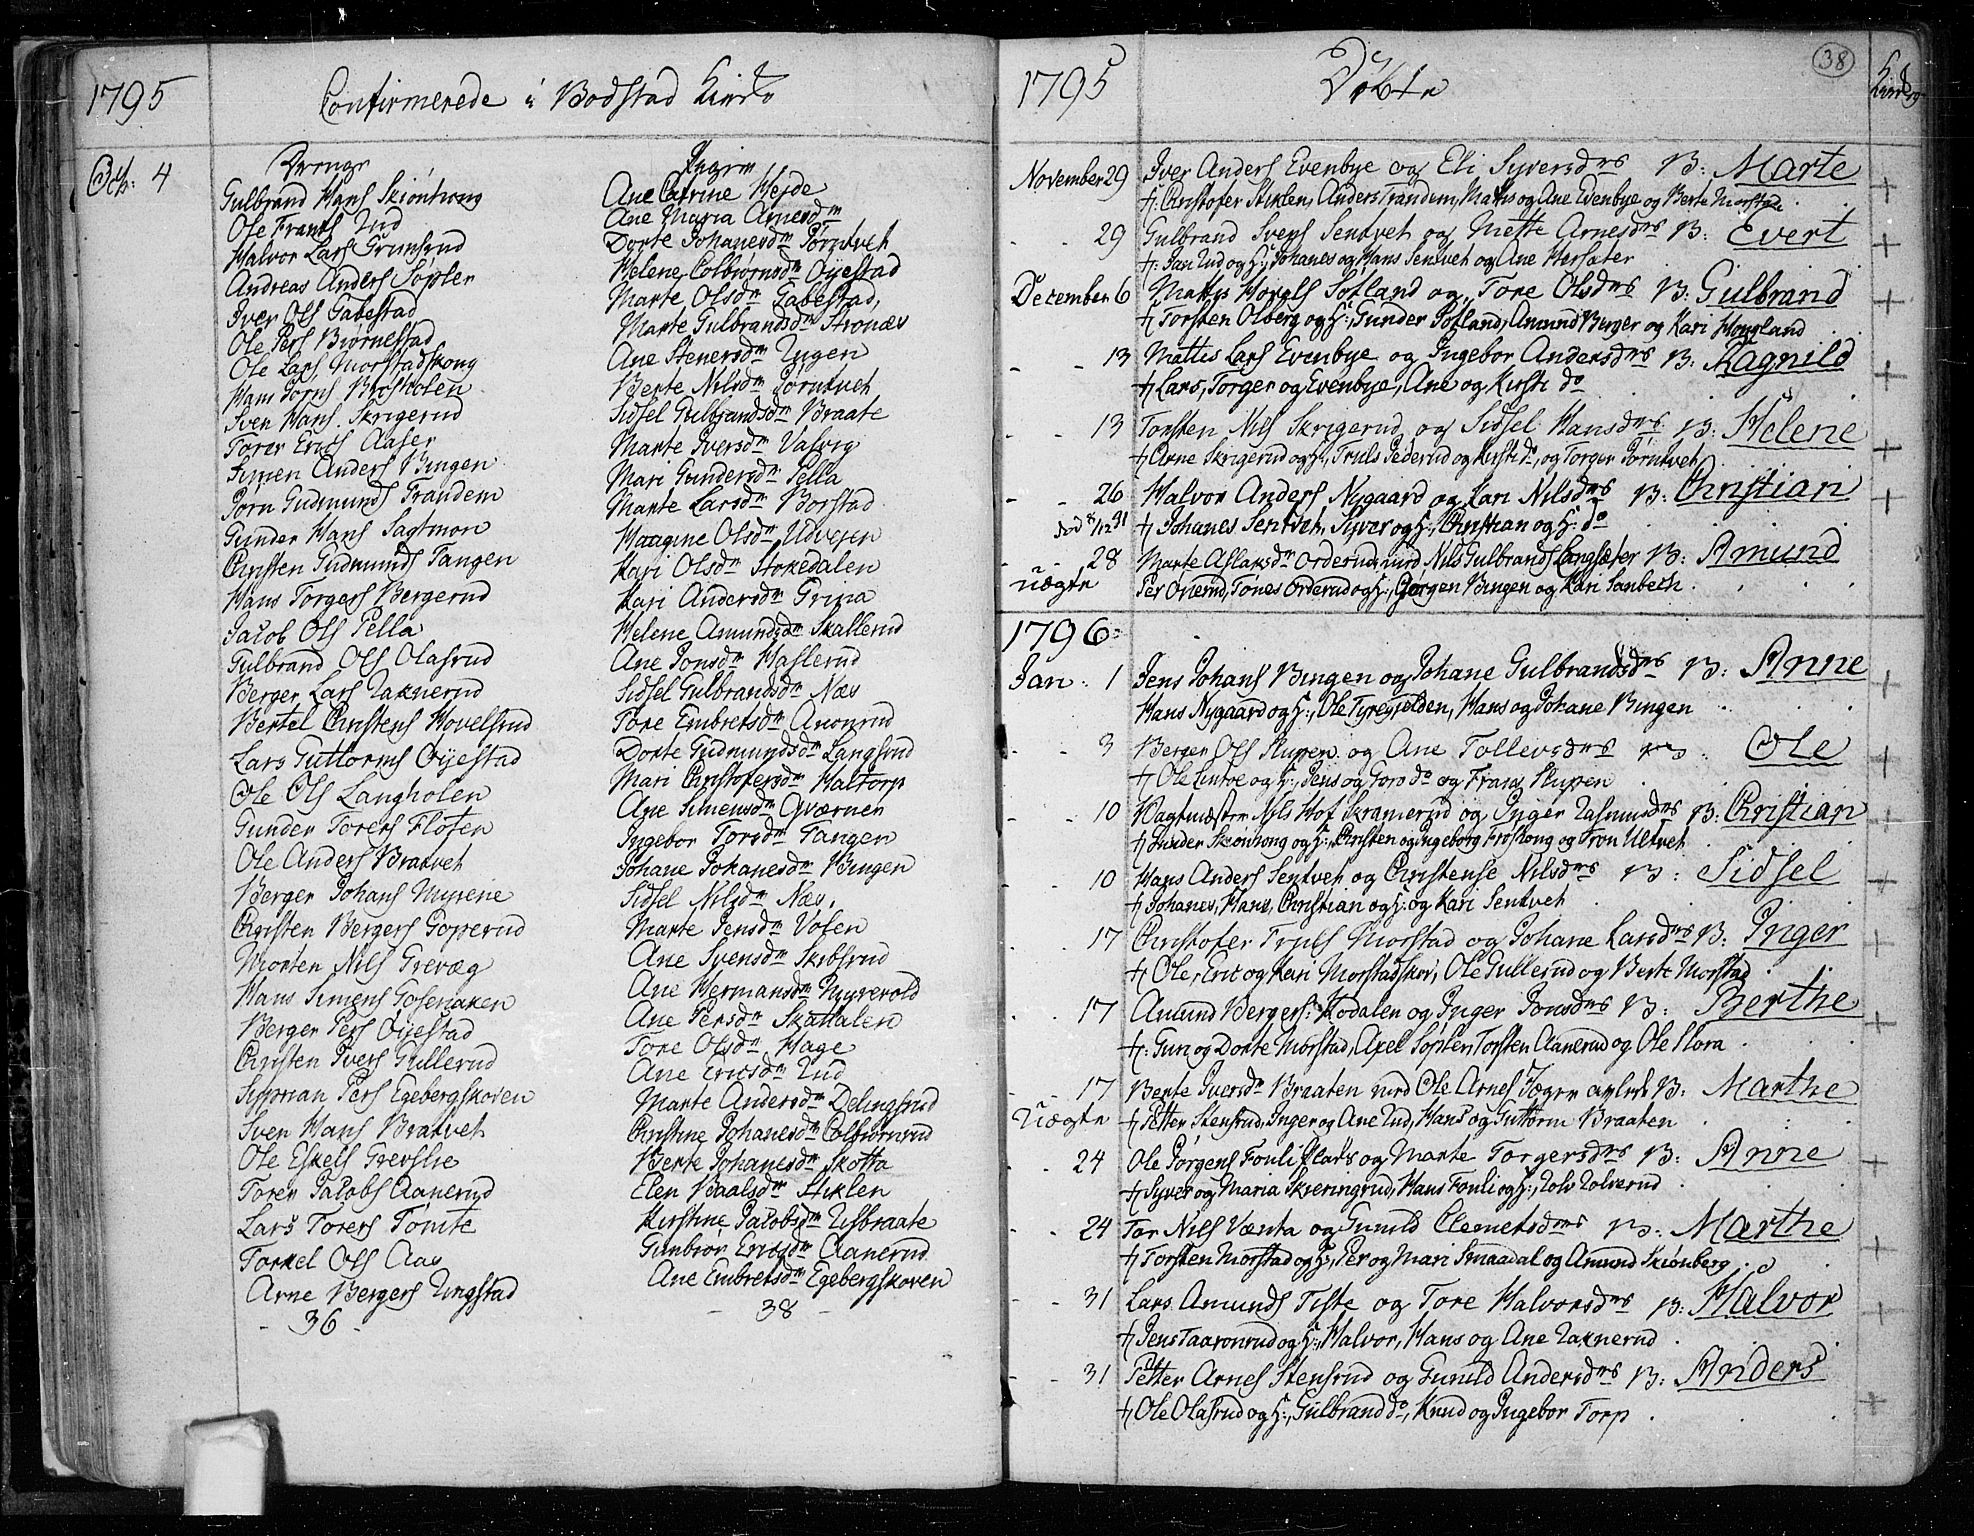 1795
Confirmerede i Bodstad Kirke
Octb: 4
Drenge
Gulbrand Hans Skiöntrong
Ole Frants Rud
Halvor Lars Grunsrud
Andreas Anders Sopler
Iver Ols Gabestad
Ole Pers Biørnestad
Ole Lars Morstadskong
Hans Jörns
Sven Hans Skrigerud
Torer Erics Aaser
Simen Anders Bingen
Jörn Gudmunds Trandem
Gunder Hans Sagtmon
Christen Gudmunds Tangen
Hans Torgers Bergerud
Jacob Ols Pella
Gulbrand Ols Olasrud
Berger Lars Raknerud
Bertel Christens Hovelsrud
Lars Guttorms Öyestad
Ole Ols Langholen
Gunder Torers Floten
Ole Anders Bratvet
Berger Johans Myrene
Christen Bergers Goperud
Morten Nils Grevæg
Hans Simens Gosenaken
Berger Pers Öyestad
Christen Ivers Gullerud
Syprian Pers Egebergskoven
Sven Hans Bratvet
Ole Eskels Grevslie
Torer Jacobs Aanerud
Lars Torers Tomte
Torkel Ols Aas
Arne Bergers Ringstad
- 36 -
Pigerne
Ane Catrine Heyde
Ane Maria Arnesdr
Dorte Johanesdr Jörntvet
Helene Colbiørnsdr Öyestad
Marte Olsdr Gabestad,
Marte Gulbrandsdr Stronæs
Ane Stenersdr Ringen
Berte Nilsdr Jörntvet
Sidsel Gulbrandsdr Braate
Marte Iversdr Valvig
Mari Gundersdr Pella
Marte Larsdr Borstad
Haagine Olsdr Udvejen
Kari Olsdr Stokedalen
Kari Andersdr Grina
Helene Amundsdr Skallerud
Ane Jonsdr Haslerud
Sidsel Gulbrandsdr Næs
Tore Embretsdr Anonrud
Dorte Gudmundsdr Langsrud
Mari Christofersdr Haltorp
Ane Simensdr Qværner
Ingebor Torsdr Tangen
Johane Johanesdr Bingen
Sidsel Nilsdr Næs,
Marte Jensdr Volen
Ane Svensdr Skibsrud
Ane Hermansdr Myrevold
Ane Persdr Skattalen
Tore Olsdr Hage
Ane Ericsdr Rud
Marte Andersdr Delingsrud
Christine Johanesdr Colbiørnrud
Berte Johanesdr Skotta
Elen Baalsdr Stiklen
Kirstine Jacobsdr Risbraate
Gunbiør Ericsdr Aanerud
Ane Embretsdr Egebergskoven
- 38 -
1795
Döbte
38
November 29 Iver Anders Evenbye og Eli Syversdrs B: Marte
†: Christofer Stiklen, Anders Trandem, Mattis og Ane Evenbye og Berte Morstad
- - 29 Gulbrand Svens Sentvet og Mette Arnesdrs B: Evert
†: Jan Rud og H:, Johanes og Hans Sentvet og Ane Hersæter
December 6 Mattis Hovels Sofland og Tore Olsdrs B: Gulbrand
†, Torsten Olberg og H:, Gunder Sofland, Amund Berger og Kari Hougland
- - 13 Mattis Lars Evenbye og Ingebor Andersdrs B: Ragnild
†, Lars, Torger og Evenbye, Ane og Kirsti do
- - 13 Torsten Nils Skrigerud og Sidsel Hansdrs B: Helene
†, Arne Skrigerud og H:, Truls Pederud og Kirsti do, og Torger Jörntvet
- - 26 Halvor Anders Nygaard og Kari Nilsdrs B: Christian
†, Johanes Sentvet, Syver og H:, Christian og H: do
- - 28 Marte Aslaksdr Orderud med Nils Gulbrands Langsæter B: Amund
Uægte Per Orerud, Tönes Orderud og H:, Jörgen Bingen og Kari Sanbech
1796:
Jan: 1 Jens Johans Bingen og Johane Gulbrandsdrs B: Anne
Hans Nygaard og H:, Ole Tyregielden, Hans og Johane Bingen
- - 3 Berger Ols Skupen og Ane Tollevsdrs B: Ole
†, Ole og H:, Jens og Goro do og Frans Skupen
- - 10 Vagtmæster Nils Hof Kramerud og Inger Rasmusdrs B: Christian
†, Gunder Skönrong og H:, Christen og Ingeborg Froskong og Tron Ultvet
- - 10 Hans Anders Sentvet og Christense Nilsdrs B: Sidsel
†, Johanes, Hans, Christian og H: og Kari Sentvet
- - 17 Christofer Truls Morstad og Johane Larsdrs B: Inger
†, Ole, Eric og Kari Morstadskov, Ole Gullerud og Berte Morstad
- - 17 Amund Bergers: Kodalen og Inger Jonsdrs B: Berthe
†: Guri og Dorte Morstad, Axel Sopler, Torsten Aanerud og Ole Flora
- - 17 Berte Iversdr Braaten med Ole Arnes avlede B: Marthe
Uægte †, Petter Stensrud, Inger og Ane Rud, Hans og Guttorm Braaten
- - 24 Ole Jörgens Foulipladts og Marte Torgersdrs B: Anne
†, Syver og Maria Skreringrud, Hans Fouli og H:, Rolv Rolverud
- - 24 Tor Nils Vænta og Gunild Clemetsdrs B: Marthe
†, Torsten Morstad og H:, Per og Mari Smaadal og Amund Skiönberg
- - 31 Lars Amunds Tiste og Tore Halvorsdrs B: Halvor
†, Jens Taaronrud og H:, Halvor, Hans og Ane Raknerud
- - 31 Petter Arnes Stensrud og Gunild Andersdrs B: Anders
†, Ole Olasrud og H:, Gulbrand do, Knud og Ingebor Torp